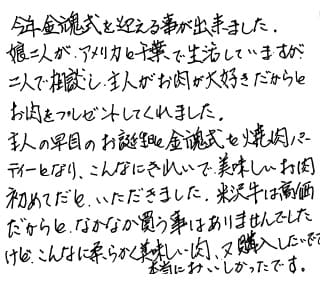 今年金魂式を迎える事が出来ました。
娘二人が、アメリカと千葉で生活していますが
二人で相談し、主人がお肉が大好きだからと
お肉をプレゼントしてくれました。
主人の早目のお誕生日と金魂式を焼肉パー
ティーとなり、こんなにきれいで美味しいお肉
初めてだと、いただきました。米沢牛は高価
だからと、なかなか買う事はありませんでした
けど、こんなに柔らかく美味しい肉、又購入したいです
本当においしかったです。